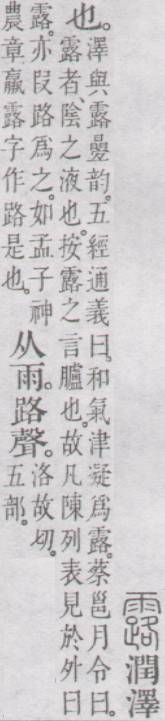 露潤澤
也。
澤與露曡韵。五經通義曰。和氣津凝爲露。蔡邕月令曰。
露者、陰之液也。按露之言臚也。故凡陳列表見於外曰
露。亦叚路爲之。如孟子神
農章羸露字作路是也。
从雨。路聲。
洛故切。
五部。